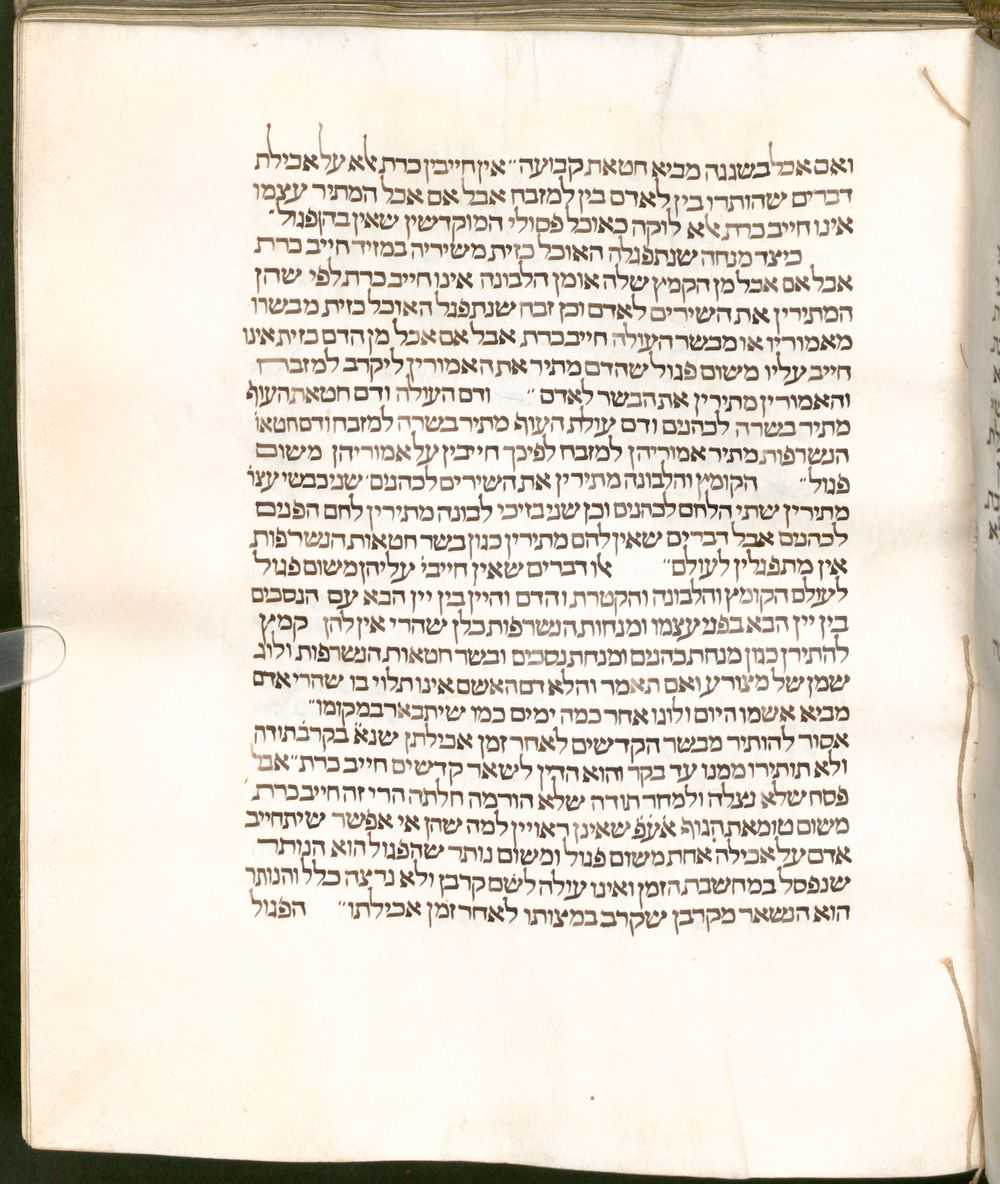 ואם אכל בשגגה מביא חטאת קבועה״ אין חייבין כרת אלא על אכילת
דברים שהותרו בין לאדם בין למזבח אבל אם אכל המתיר עצמו
אינו חייב כרת אלא לוקה כאוכל פסולי המוקדשין שאין בהן פגול״
כיצד מנחה שנתפגלה האוכל כזית משיריה במזיד חייב כרת
אבל אם אכל מן הקמץ שלה או מן הלבונה אינו חייב כרת לפי שהן
המתירין את השירים לאדם וכן זבח שנתפגל האוכל כזית מבשרו
מאמוריו או מבשר העולה חייב כרת אבל אם אכל מן הדם כזית אינו
חייב עליו משום פגול שהדם מתיר את האמורין ליקרב למזבח
והאמורין מתירין את הבשר לאדם״ ודם העולה ודם חטאת העוף
מתיר בשרה לכהנים ודם עולת העוף מתיר בשרה למזבח ודם חטאו
הנשרפות מתיר אמוריהן למזבח לפיכך חייבין על אמוריהן משום
פגול״ הקומץ והלבונה מתירין את השירים לכהנים שני כבשי עצר
מתירין שתי הלחם לכהנים וכן שני בזיכי לבונה מתירין לחם הפנים
לכהנים אבל דברים שאין להם מתירין כגון בשר חטאות הנשרפות
אין מתפגלין לעולם״ אלו דברים שאין חייבי׳ עליהן משום פגול
לעולם הקומץ והלבונה והקטרת והדם והיין בין יין הבא עם הנסכים
בין יין הבא בפני עצמו ומנחות הנשרפות כלן שהרי אין להן קמץ
להתירן כגון מנחת כהנים ומנחת נסכים ובשר חטאות הנשרפות ולוג
שמן של מצורע ואם תאמר והלא דם האשם אינו תלוי בו שהרי אדם
מביא אשמו היום ולוגו אחר כמה ימים כמו שיתבאר במקומו״
אסור להותיר מבשר הקדשים לאחר זמן אכילתן שנא׳ בקרבן תודה
ולא תותירו ממנו עד בקר והוא הדין לשאר קדשים חייב כרת״ אבל
פסח שלא נצלה ולמחר תודה שלא הורמה חלתה הרי זה חייב כרת
משום טומאת הגוף אע״פ שאינן ראויין למה שהן אי אפשר שיתחייב
אדם על אכילה אחת משום פגול ומשום נותר שהפגול הוא הנותר
שנפסל במחשבת הזמן ואינו עולה לשם קרבן ולא נרצה כלל והנותר
הוא הנשאר מקרבן שקרב במצותו לאחר זמן אכילתו״ הפגול